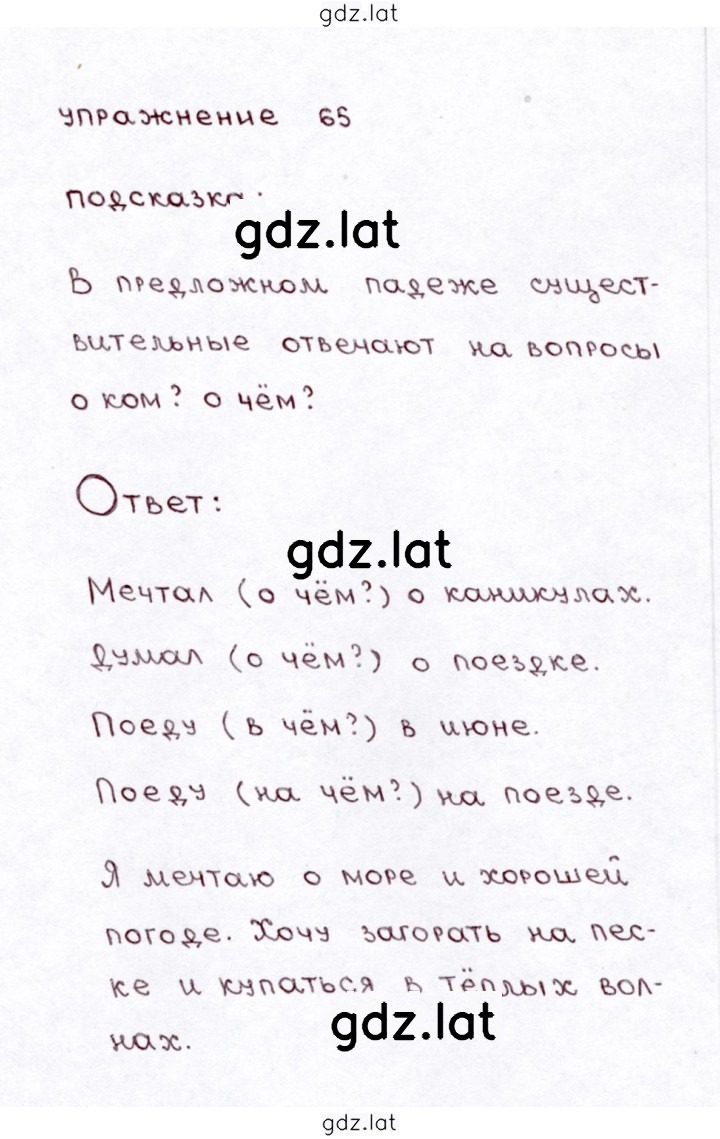 gdz.lat
упражнение 65
подсказка:
gdz.lat
В предложном падеже сущест-
вительные отвечают на вопросы
о ком? о чём?
Ответ:
gdz.lat
Мечтал (о чём?) о каникулах.
Думал (о чём?) о поездке.
Поеду (в чём?) в июне.
Поеду (на чём?) на поезде.
Я мечтаю о море и хорошей
погоде. Хочу загорать на пес-
ке и купаться в тёплых вол-
gdz.lat
нах.
gdz.lat